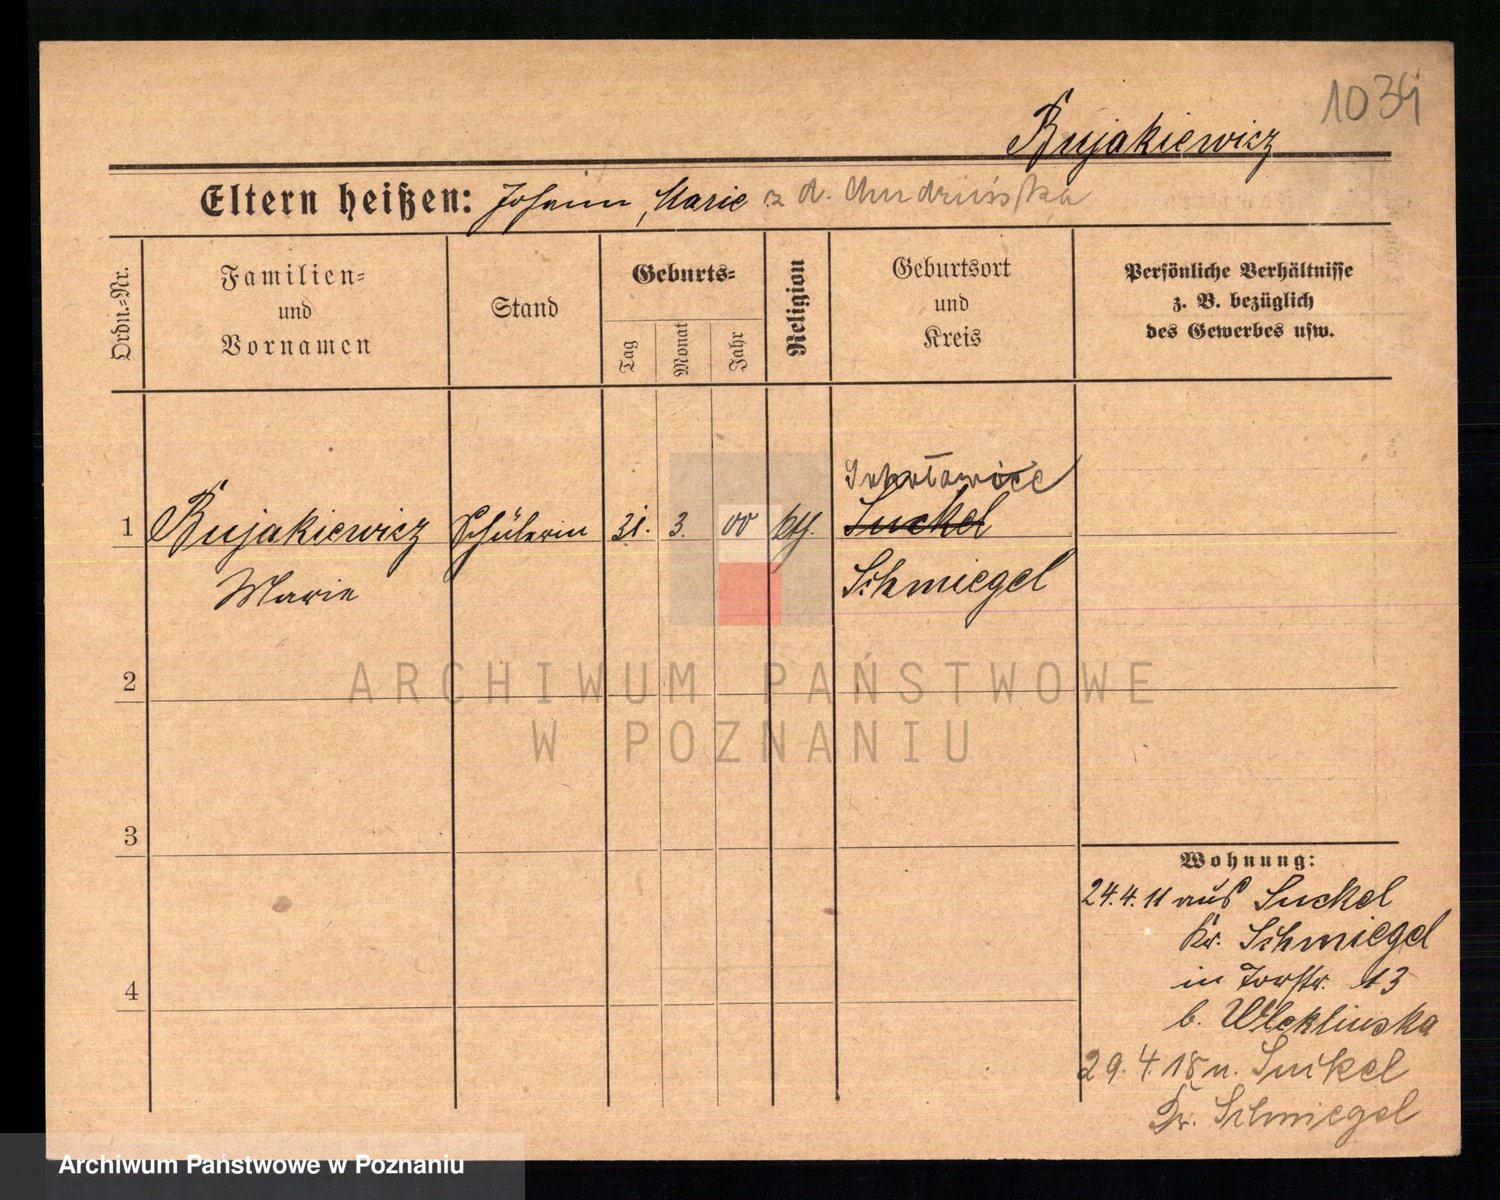 1034
Bujakiewicz
Eltern heißen: Johann, Marie z d.
Ordn.=Nr.
Familien=
und
Vornamen
Stand
Geburts=
Tag
Monat
Jahr
Religion
Geburtsort
und
Kreis
Persönliche Verhältnisse
z. B. bezüglich
des Gewerbes usw.
1 Bujakiewicz Schülerin 31. 3. 00 kth. Suckel
Marie Schmiegel
2
3
4
Wohnung:
24.4.11 aus Suckel
Kr. Schmiegel
in Torstr. 13
b. Wleklinska
29.4.18 n. Suckel
Kr. Schmiegel
ARCHIWUM PAŃSTWOWE
W POZNANIU
Archiwum Państwowe w Poznaniu